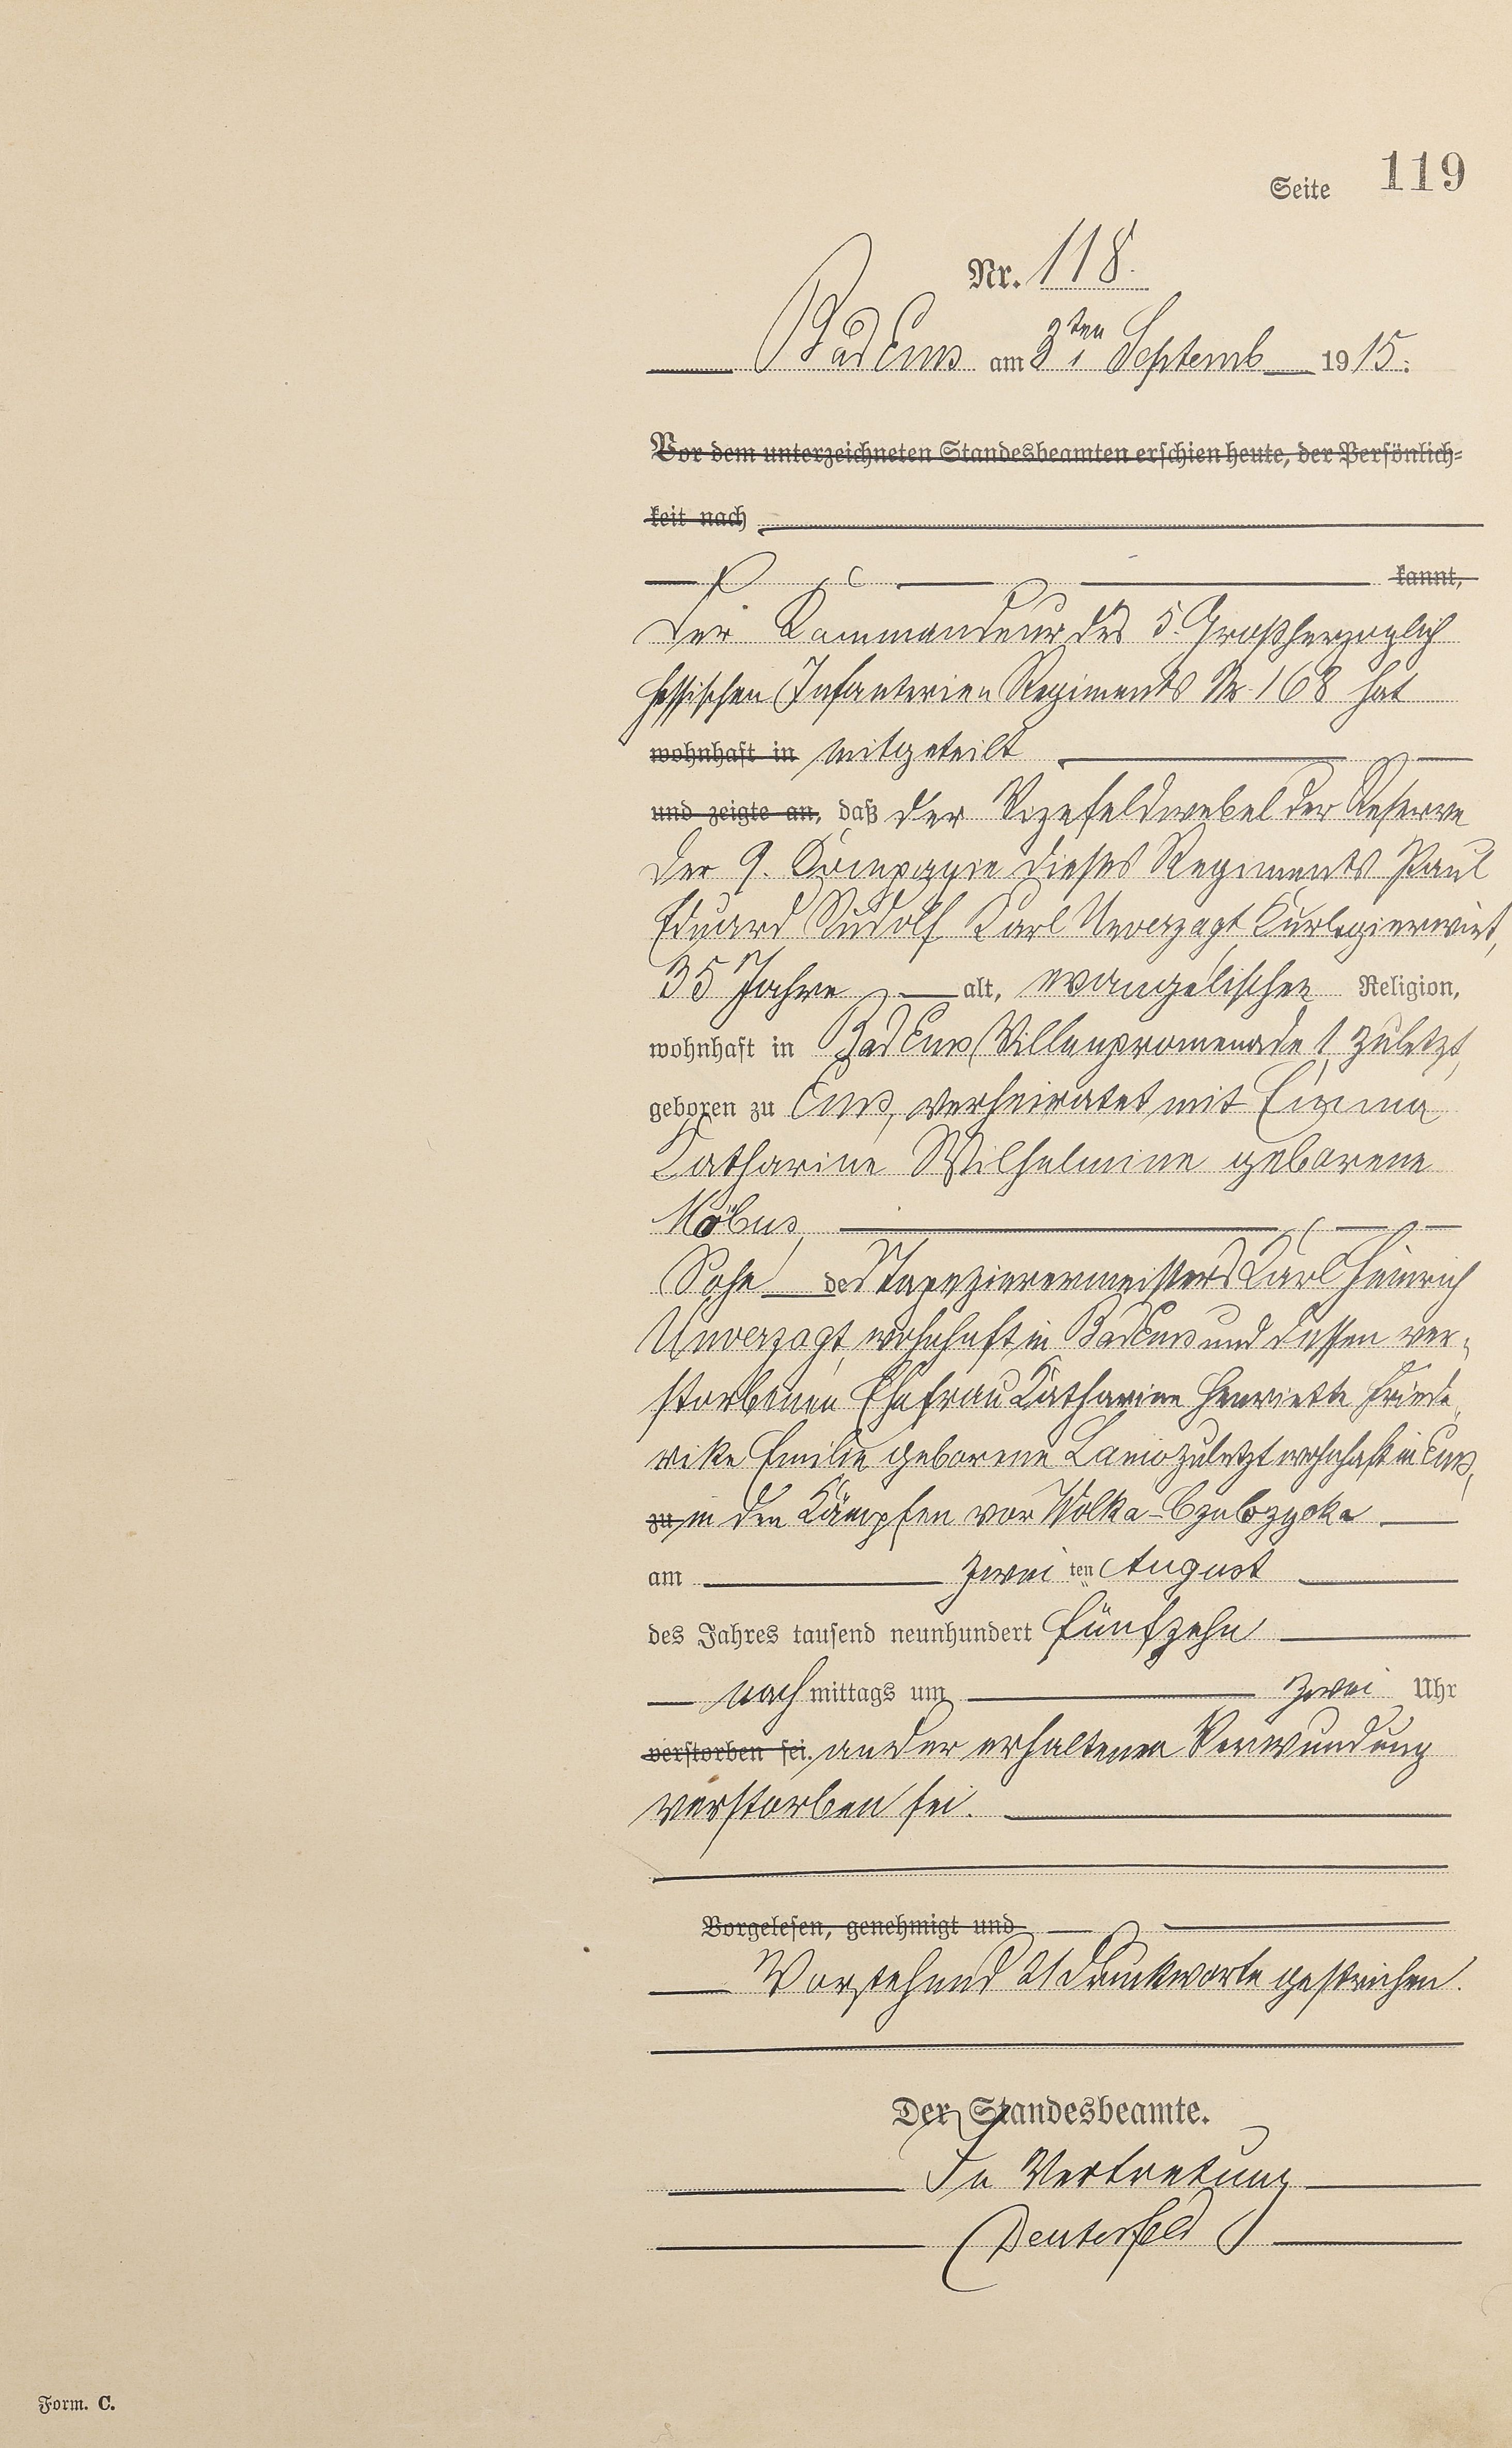 Seite 119
Nr. 118.
Bad Ems am 3ten Septemb 1915.
Vor dem unterzeichneten Standesbeamten erschien heute, der Persönlich-
keit nach
kannt,
Der Kommandeur des 5. Großherzoglich
hessischen Infanterien Regiments Nr. 168 hat
wohnhaft in mitgeteilt
und zeigte an, daß der Vizefeldwebel der Reserve
der 9. Kompagnie dieses Regiments Paul
Eduard Rudolf Karl Unverzagt, Kurlogierwirt,
35 Jahre alt, evangelischer Religion,
wohnhaft in Bad Ems, Villenpromenade 1, zuletzt,
geboren zu Ems, verheiratet mit Emma
Katharine Wilhelmine geborene
Möbus,
Sohn des Tapezierermeisters Karl Heinrich
Unverzagt, wohnhaft in Bad Ems und dessen ver-
storbenen Ehefrau Katharine Henriette Friede-
rike Emilie geborene Lanio zuletzt wohnhaft in Ems,
zu in den Kämpfen vor Wolka-
am zwei ten August
des Jahres tausend neunhundert fünfzehn
nach mittags um zwei Uhr
verstorben sei. an der erhaltenen Verwundung
verstorben sei.
Vorgelesen, genehmigt und
Vorstehend 21 Druckworte gestrichen.
Der Standesbeamte.
In Vertretung
Form. C.